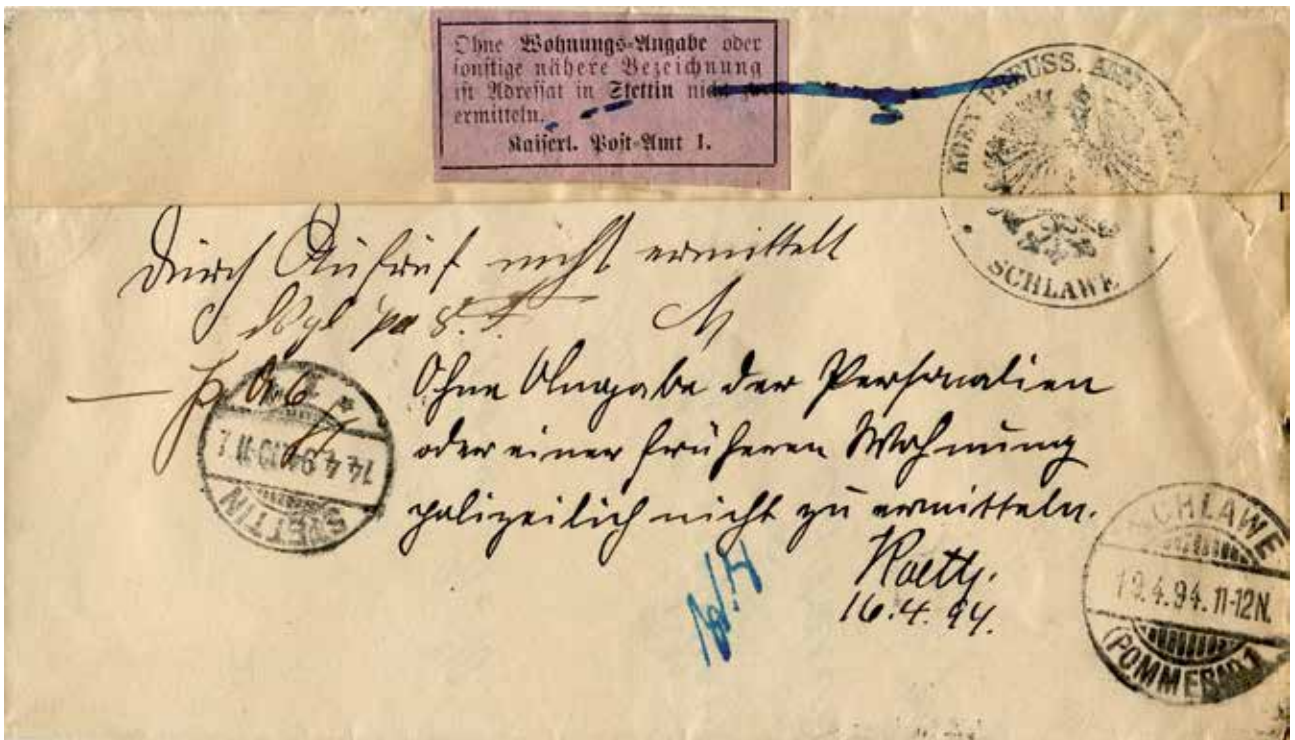 Ohne Wohnungs-Angabe oder
sonstige nähere Bezeichnung
ist Adressat in Stettin nicht zu
ermitteln.
Kaiserl. Post-Amt 1.
KOEN. PREUSS.
SCHLAWE
Durch Aufruf nicht ermittelt
Ohne Angabe der Personalien
oder einer früheren Wohnung
polizeilich nicht zu ermitteln.
16.4.94.
STETTIN
14.4.94.10-11
SCHLAWE
19.4.94.11-12N.
(POMMERN) 1